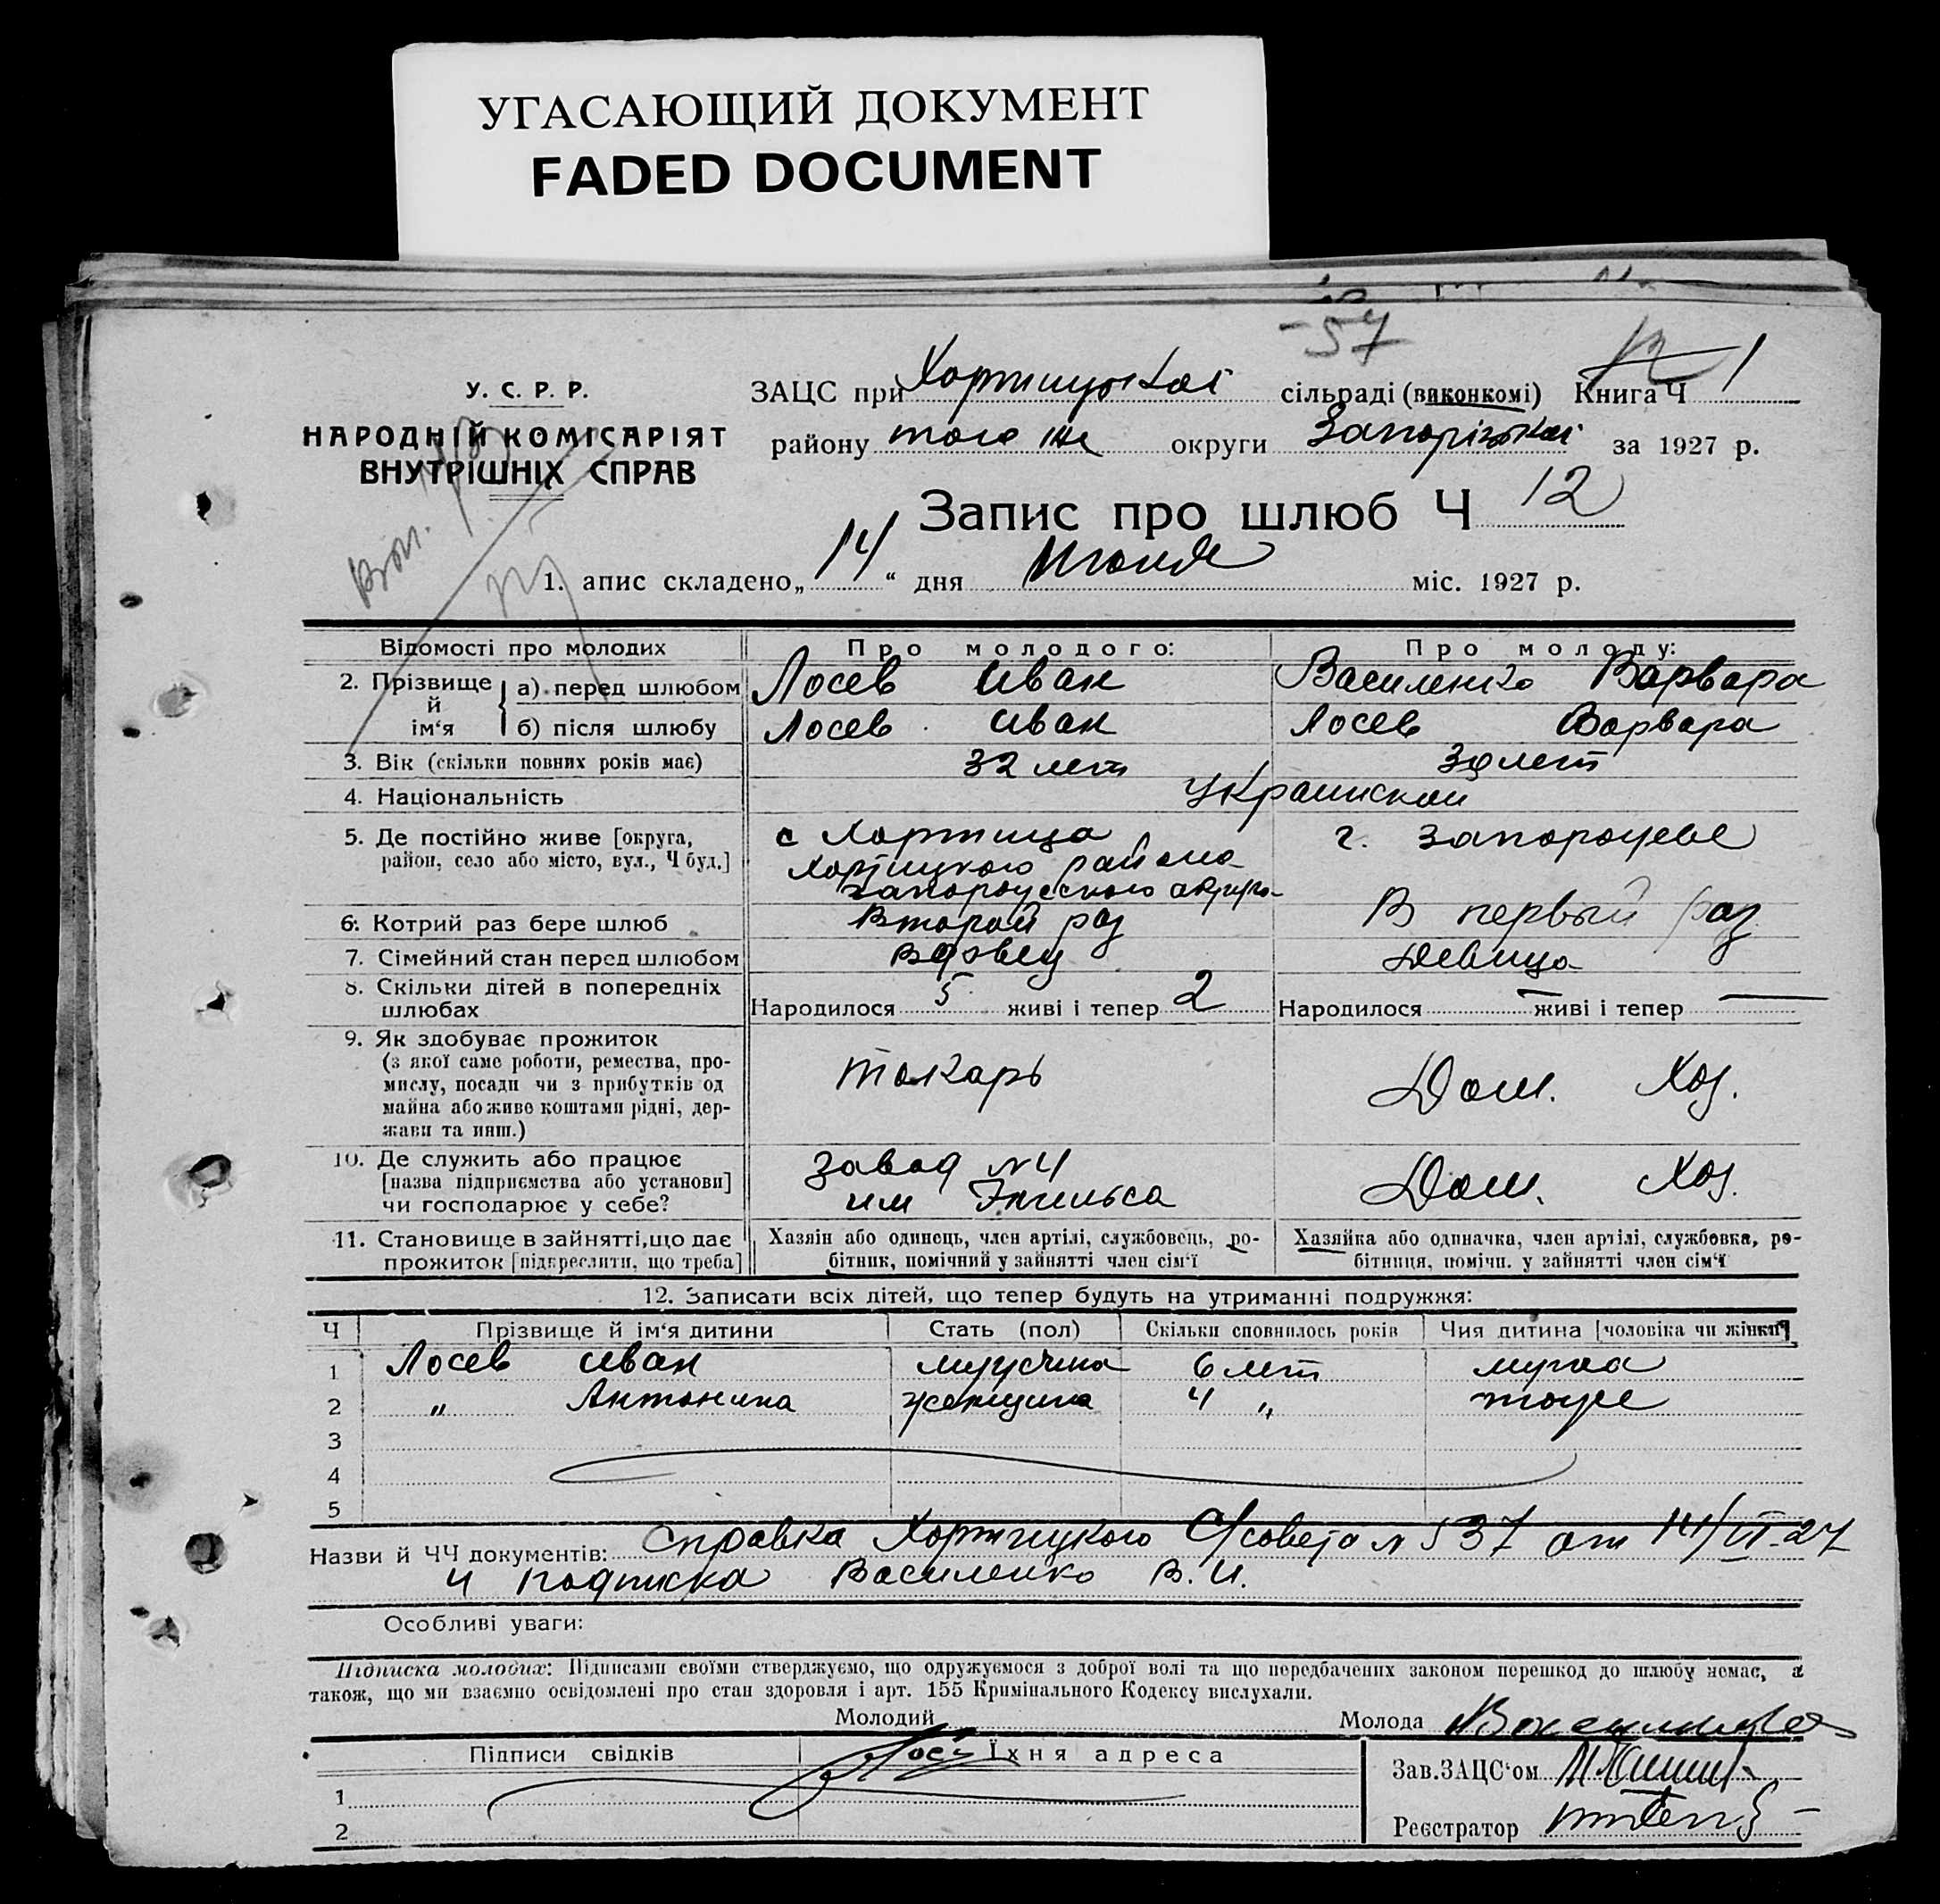 УГАСАЮЩИЙ ДОКУМЕНТ
FADED DOCUMENT
57
У. С. Р. Р.
НАРОДНІЙ КОМІСАРІЯТ
ВНУТРІШНІХ СПРАВ
ЗАЦС при Хортицької сільраді (виконкомі) Книга Ч 1
району того же округи Запорізької за 1927 р.
Запис про шлюб Ч 12
1. апис складено „14“ дня Июня міс. 1927 р.
Відомості про молодих Про молодого: Про молоду:
2. Прізвище й ім‘я а) перед шлюбом Лосев Иван Василенко Варвара
б) після шлюбу Лосев Иван Лосев Варвара
3. Вік (скільки повних років має) 32 лет 30 лет
4. Національність Украинской
5. Де постійно живе [округа, район, село або місто, вул., Ч буд.] с Хортица г. Запорожье
Хортицкого района
Запорожского округа
6. Котрий раз бере шлюб Второй раз В первый раз
7. Сімейний стан перед шлюбом Вдовец Девица
8. Скільки дітей в попередніх шлюбах Народилося 5 живі і тепер 2 Народилося — живі і тепер —
9. Як здобуває прожиток
(з якої саме роботи, ремества, про-
мислу, посади чи з прибутків од
майна або живе коштами рідні, дер-
жави та инш.)
Токарь Дом. Хоз.
10. Де служить або працює
[назва підприємства або установи]
чи господарює у себе?
Завод N 4 Дом. Хоз.
им Энгельса
11. Становище в занятті, що дає
прожиток [підкреслити, що треба]
Хазяін або одинець, член артілі, службовець, ро-
бітник, помічний у зайнятті член сім‘ї
Хазяйка або одиначка, член артілі, службовка, ро-
бітниця, помічн. у зайнятті член сім‘ї
12. Записати всіх дітей, що тепер будуть на утриманні подружжя:
Ч Прізвище й ім‘я дитини Стать (пол) Скільки сповнилось років Чия дитина [чоловіка чи жінки]
1 Лосев Иван мужчина 6 лет мужа
2 „ Антонина женщина 4 „ тоже
3
4
5
Назви й ЧЧ документів: Справка Хортицкого С/совета N 537 от 14/VI-27
и подписка Василенко В. И.
Особливі уваги:
Підписка молодих: Підписами своїми стверджуємо, що одружуємося з доброї волі та що передбачених законом перешкод до шлюбу немає, а
також, що ми взаємно освідомлені про стан здоровля і арт. 155 Кримінального Кодексу вислухали.
Молодий Молода
Підписи свідків Їхня адреса
Зав. ЗАЦС‘ом
1
2
Реєстратор